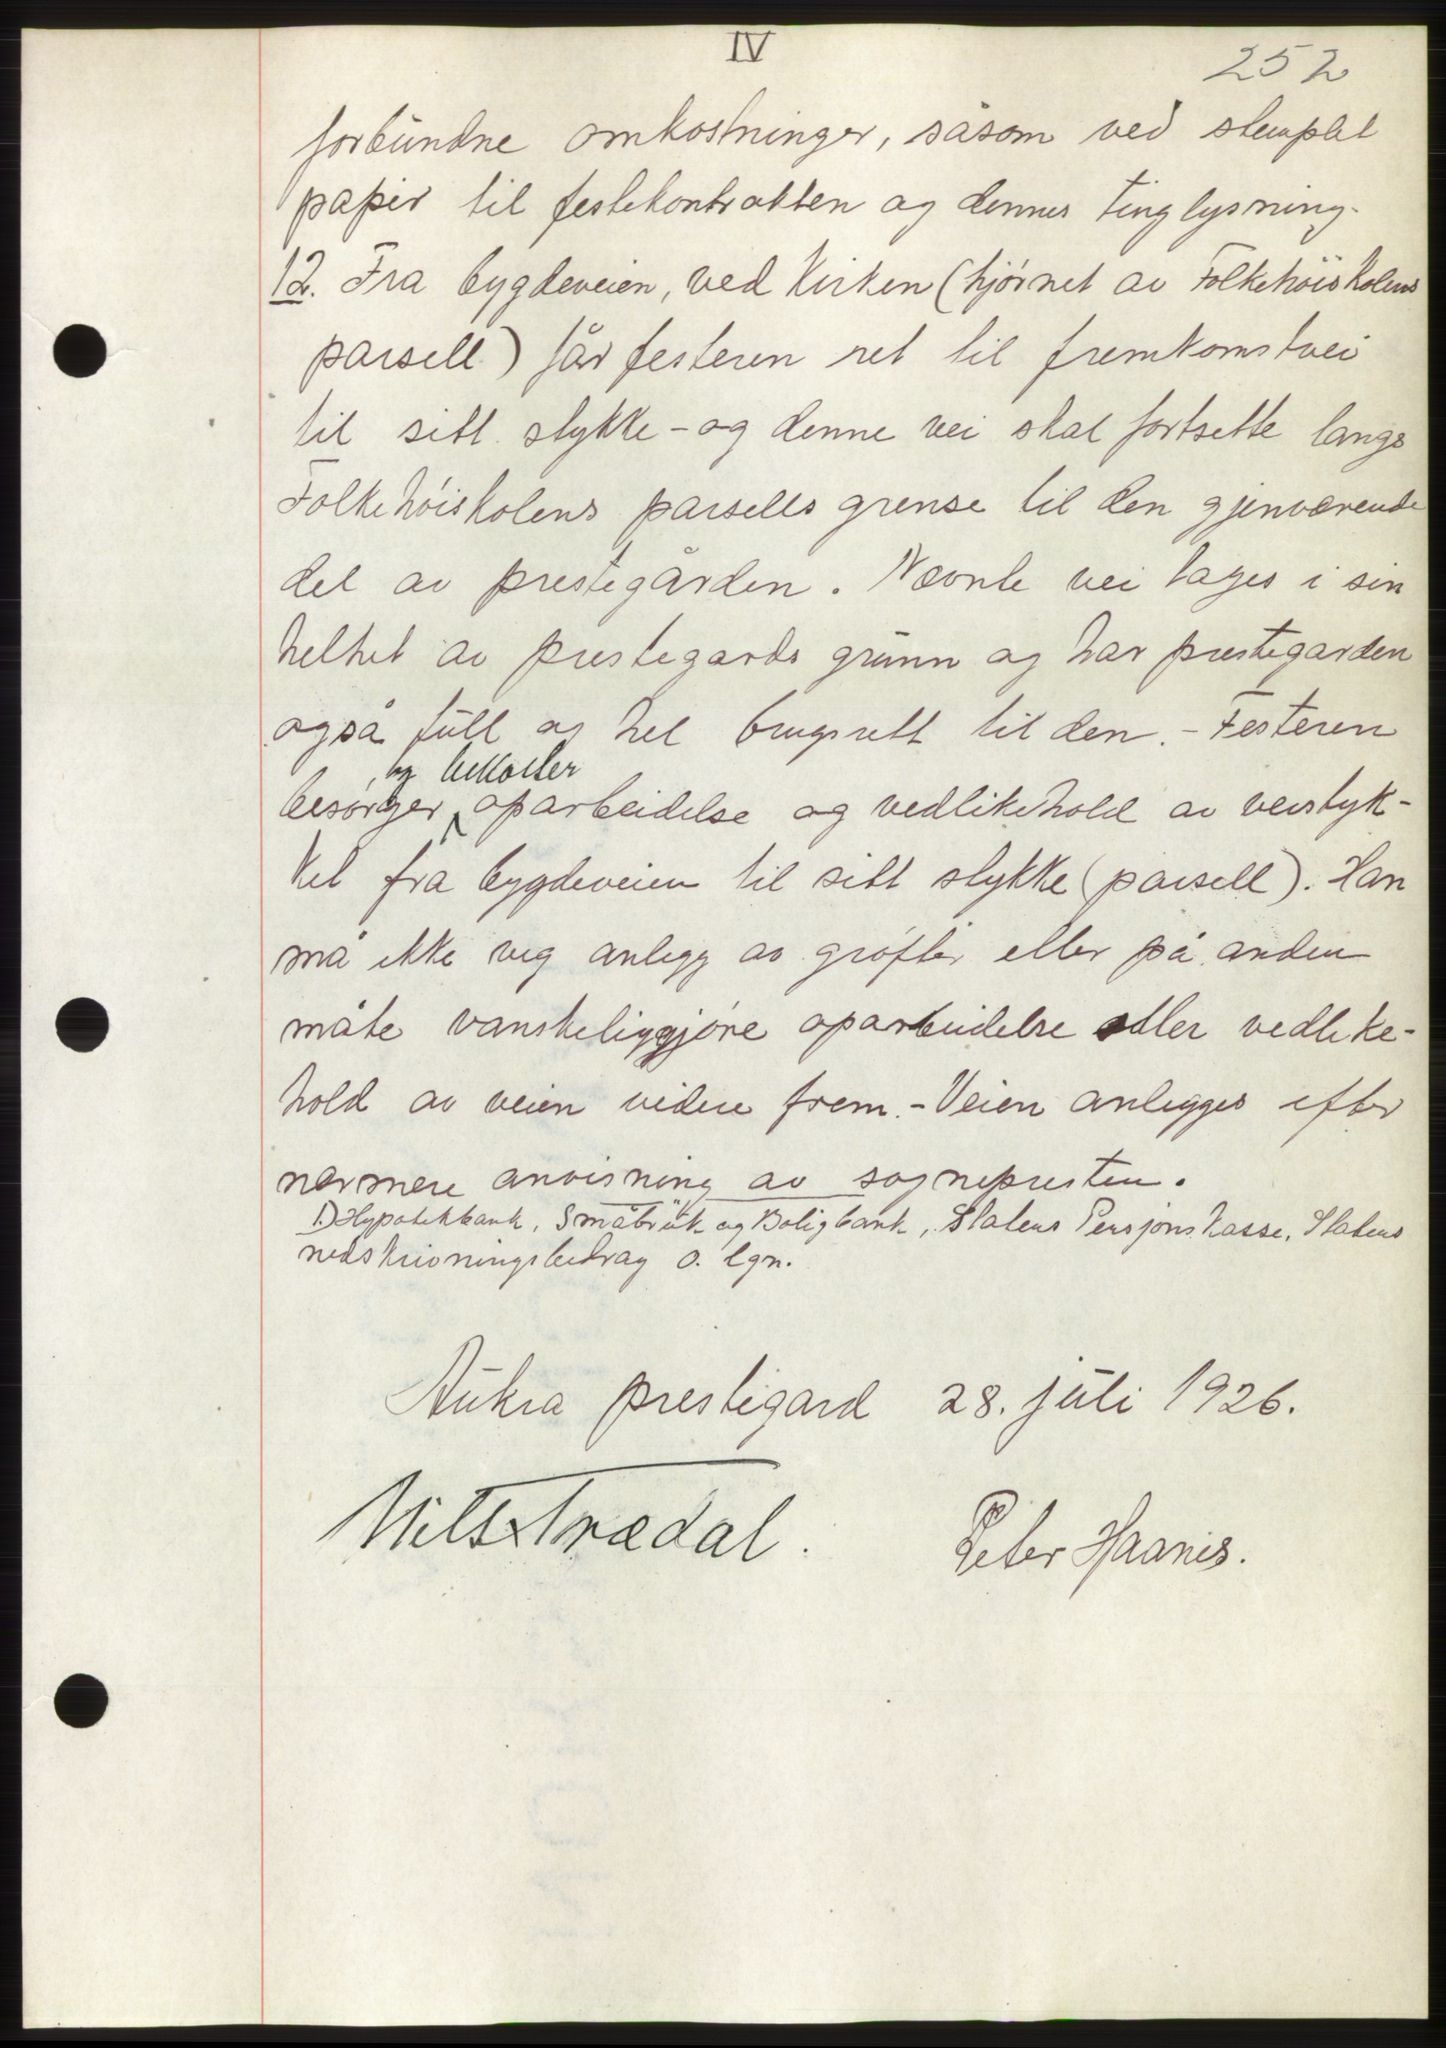 IV
252
forbundne omkostninger, såsom ved stemplet
papir til festekontrakten og dennes tinglysning.
12. Fra bygdeveien, ved Kirken (hjørnet av Folkehöiskolens
parsell) får festeren ret til fremkomstvei
til sitt stykke - og denne vei skal fortsette langs
Folkehöiskolens parsells grense til den gjenværende
del av prestegården. Nævnte vei tages i sin
helhet av prestegards grunn og har prestegarden
også full og hel brugsrett til den. - Festeren
og bekoster
besørger oparbeidelse og vedlikehold av veistyk-
ket fra bygdeveien til sitt stykke (parsell). Han
må ikke veg anlegg av grøfter eller på anden
måte vanskeliggjøre oparbeidelse eller vedlike-
hold av veien videre frem. - Veien anlegges efter
nærmere anvisning av sognepresten.
1.) Hypotekbank, Småbruk og Boligbank, Statens Pensjonskasse, Statens
nedskrivningsbidrag o. lgn.
Aukra prestegard 28. juli 1926.
Nils Trædal.
Peter Haanes.